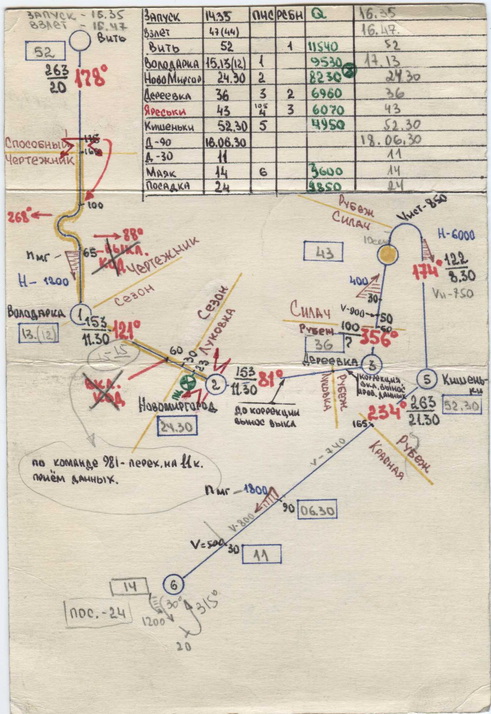 ЗАПУСК - 16.35
ВЗЛЕТ - 16.47
ВИТЬ
52
263
20
178°
ЗАПУСК 14.35 ПНС РСБН Q 16.35
ВЗЛЕТ 47(44) 16.47.
ВИТЬ 52 1 11540 52
ВОЛОДАРКА 15.13(12) 1 9530 17.13
НОВОМИРГОР. 24.30 2 8230 24.30
ДЕРЕЕВКА 36 3 2 6960 36
ЯРЕСЬКИ 43 4 3 6070 43
КИШЕНЬКИ 52.30 5 4950 52.30
Д-90 16.06.30 18.06.30
Д-30 11 11
МАЯК 14 6 3600 14
ПОСАДКА 24 2850 24
СПОСОБНЫЙ
ЧЕРТЕЖНИК
100
268°
88°
ВЫКЛ.
КОД
ЧЕРТЕЖНИК
65
ПМГ -
Н - 1200
СЕЗОН
ВОЛОДАРКА
1
13.(12)
153
11.30
121°
СЕЗОН
ЛУКОВКА
60
ВКЛ.
КОД
2
НОВОМИРГОРОД
24.30
153
11.30
81°
ДО КОРРЕКЦИИ
ВЫНОС ВЫКЛ
РУБЕЖ
СИЛАЧ
Vист-850
Н-6000
43
174°
122
8.30
400
30
V-900
50
СИЛАЧ
РУБЕЖ
100
356°
36
ДЕРЕЕВКА
3
ЛУКОВКА
РУБЕЖ
КОРРЕКЦИЯ
5
КИШЕНЬ-
КИ
52.30
234°
263
21.30
165
РУБЕЖ
КРАСНАЯ
V-740
ПО КОМАНДЕ 981- ПЕРЕХ. НА 11 К.
ПРИЁМ ДАННЫХ.
ПМГ - 1800
90
06.30
V-800
V=500
30
11
6
14
ПОС.-24
30°
1200
315°
20